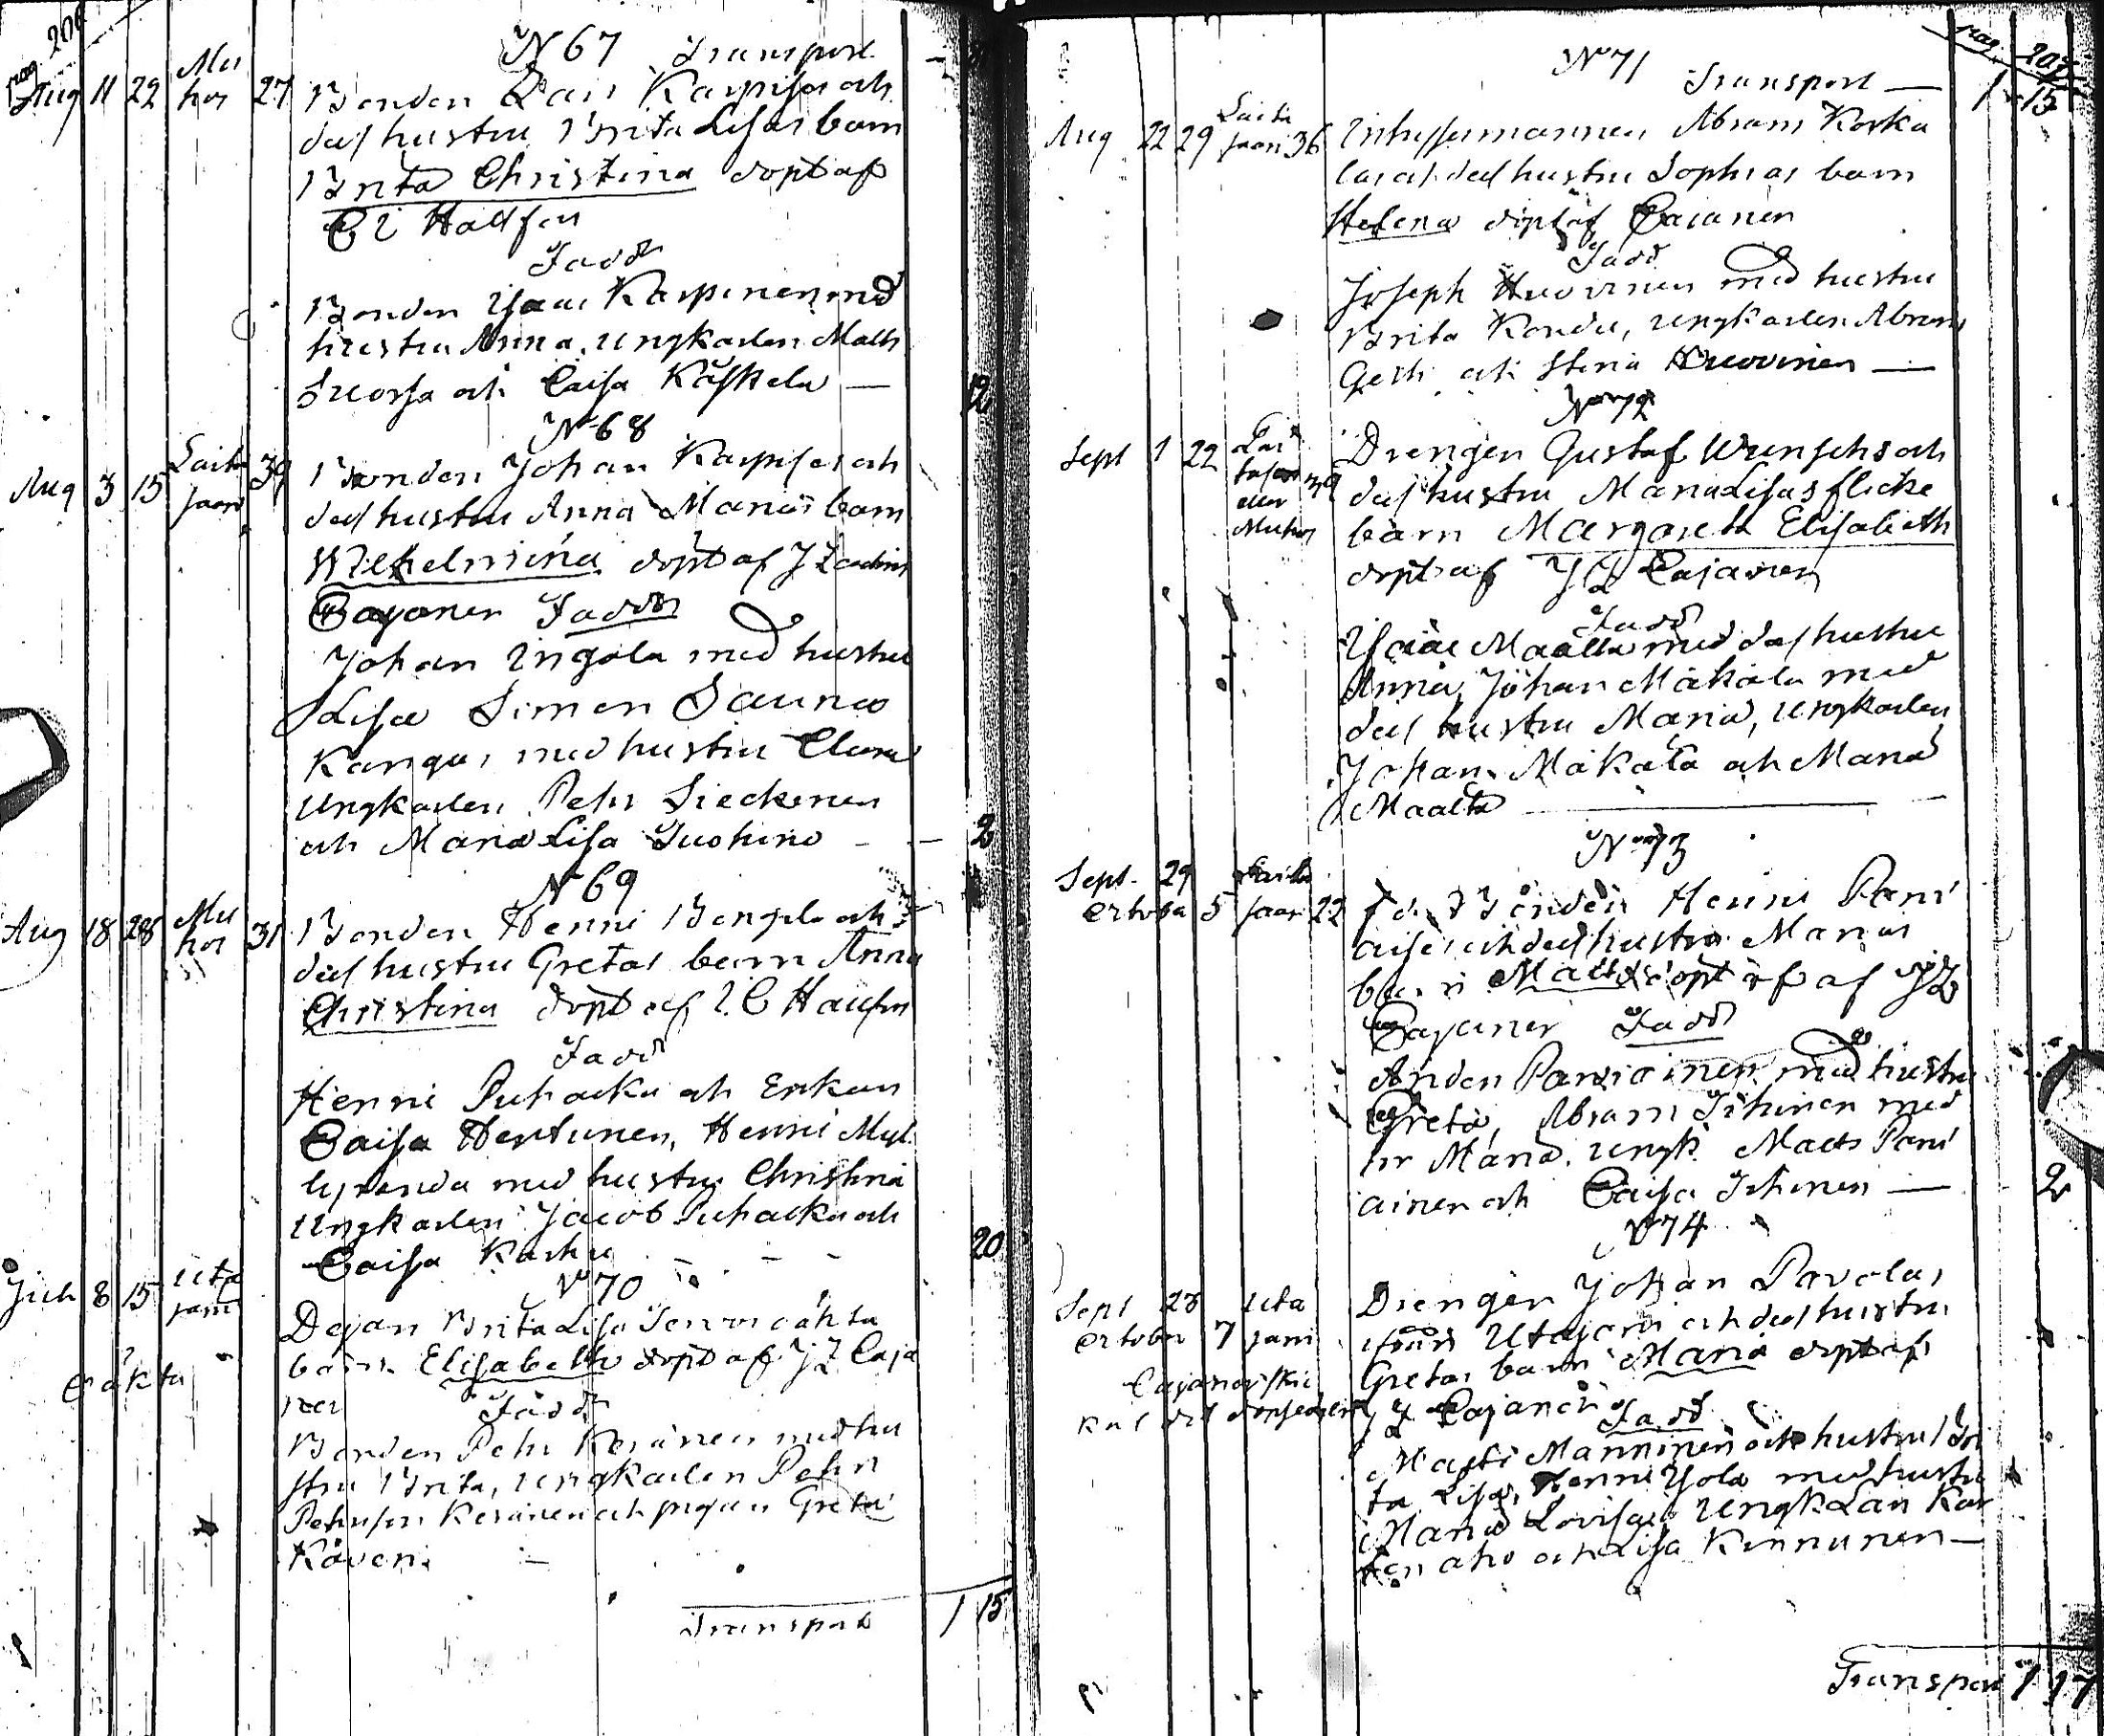 pag 206
N 67 Transport
Aug 11 22 Mu
hos 27 Bonden Lars Karppises och
dess hustru Brita Lisas barn
Brita Christina döpt af
Faddr
Bonden Isaac Karpinen med
hustru Anna, Ungkarlen Matts
Suorsa och Caisa Käskela — 12
N 68
Aug 3 15 Laita
saari 39 Bonden Johan Karppises och
dess hustru Anna Marias barn
Wilhelmina döpt af J Z
Cajanen Faddr
Johan Ingola med hustru
Lisa Simon Sauna
Kangas med hustru Clara
Ungkarlen Pehr Sieckinen
och Maria Lisa Juohino — 2
N 69
Aug 18 28 Mu
hos 31 Bonden Henric och
dess hustru Gretas barn Anna
Christina döpt af
Fadd
Henric Puhacka och Enkan
Caisa Herttunen, Henric Myl
lyranda med hustru Christina
Ungkarlen Jacob Puhacka och
Caisa Karhu 20
N 70
8 15 Uta
jarvi
Brita Lisa
barn Elisabeth döpt af J Z Caja
nen Faddr
oäkta
Bonden Pehr Keränen med hu
stru Brita, Ungkarlen Pehr
Pehrson Keränen och pigan Greta
Transport 1 15
pag 207
N 71
Transport — 1 15
Aug 22 29 Laita
saari 36 Inhysesmannen Abram Koska
las och dess hustru Sophias barn
Helena döpt af Cajanen
Fadd
Joseph Huovinen med hustru
Brita, Ungkarlen Abram
och Stina Huovinen —
N 72
Sept 1 22 Lai
tasaari 39
eller
Muhos
Drengen Gustaf Wunschs och
dess hustru Maria Lisas flicke
barn Margareta Elisabeth
döpt af J Z Cajanen
Fadd
Isaac Maalta med dess hustru
Anna, Johan Mäkälä med
dess hustru Maria, Ungkarlen
Johan Mäkälä och Maria
Maalta
N 73
Sept. 29 Laita
October 5 saari 22 Bonden Henric Pani
aises och dess hustru Marias
barn Matts döpt af J Z
Cajanen Fadd
Anders Paniainen med hustru
Greta, Abram Itkinen med
hr Maria. Ungk. Matts Pani
ainen och Caisa Itkinen — 2
N 74
Sept 28 Uta
October 7 jarvi
Drengen Johan Pavolas
ifrån Utajärvi och dess hustru
Gretas barn Maria döpt af
J Z Cajanen Fadd
Matts Manninen och hustru Bri
ta Lisa, Henric Yola med hustru
Maria Lovisa Ungk Lars Kar
aho och Lisa Kinnunen —
Transport 1 17